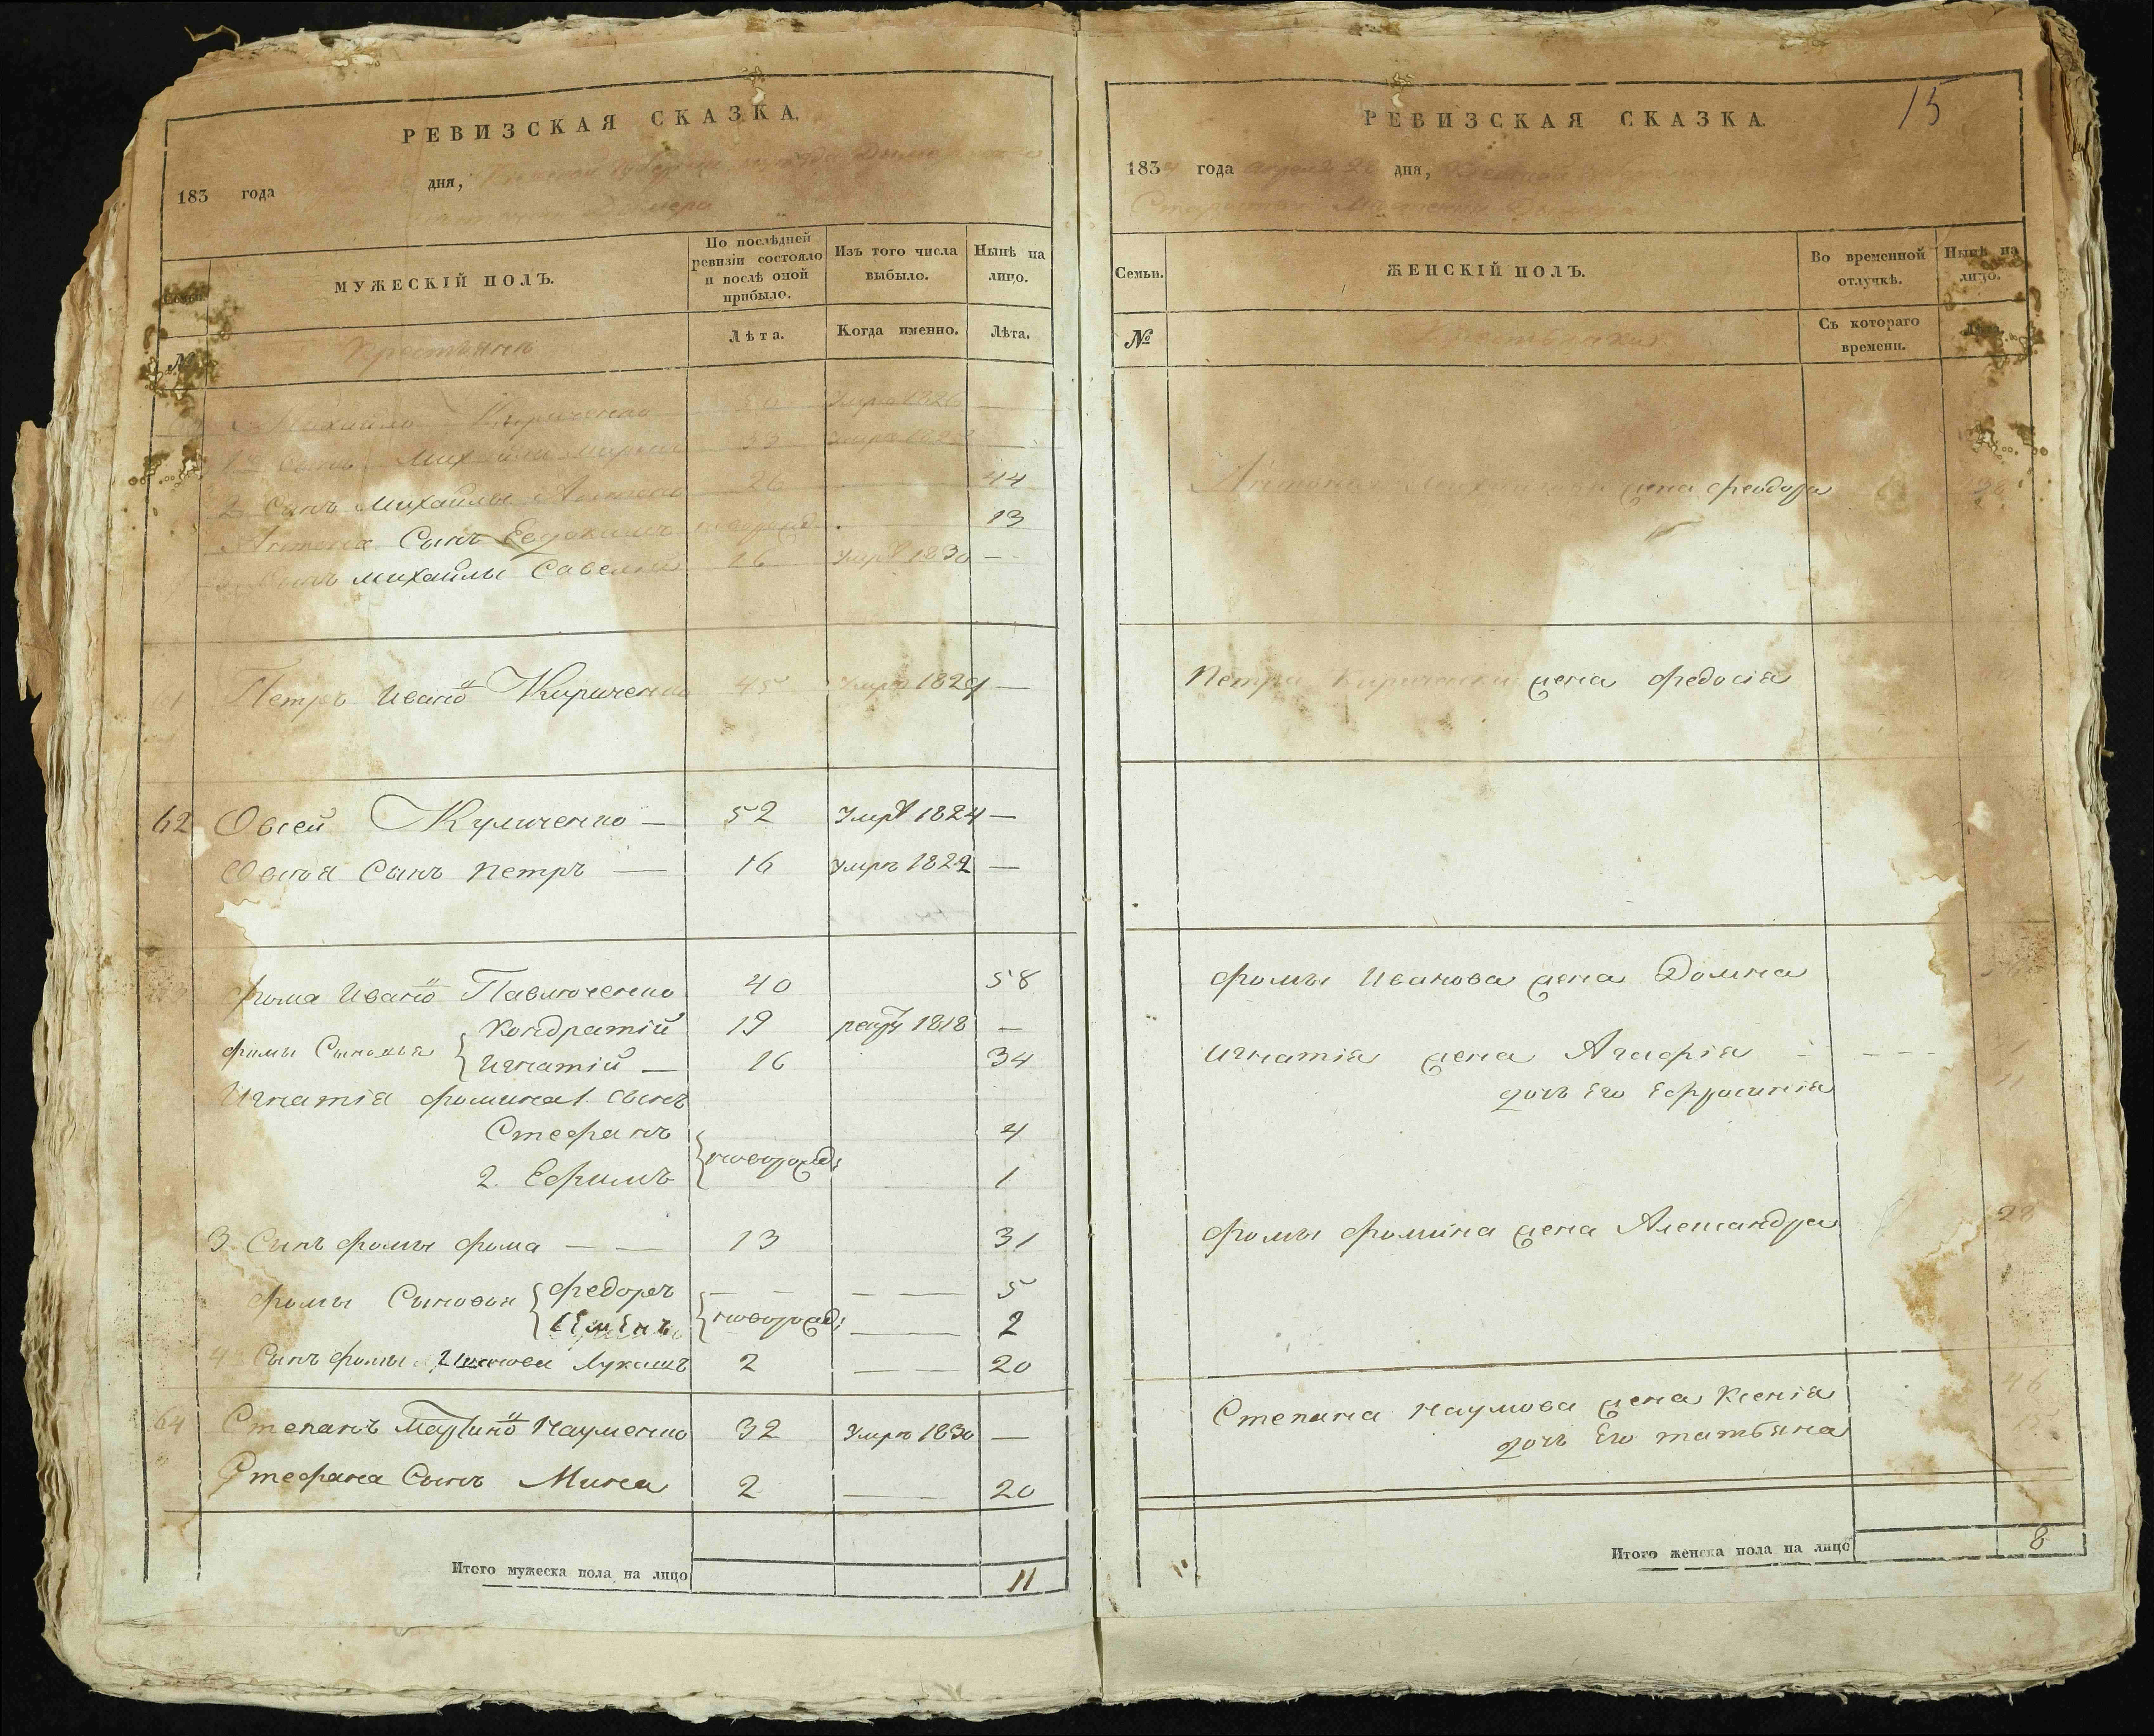 РЕВИЗСКАЯ СКАЗКА.
183 года дня, Кіевской губерніи
Димера
Семьи. МУЖЕСКІЙ ПОЛЪ. По послѣдней ревизіи состояло и послѣ оной прибыло. Изъ того числа выбыло. Нынѣ на лицо.
№ Крестьяне Лѣта. Когда именно. Лѣта.
Михайло Кириченко 50 Умръ 1826 —
1й Сынъ Михайлы 33 умръ —
2 Сынъ Михайлы Антонъ 26 44
Антона Сынъ Евдокимъ новорожд 13
Сынъ Михайлы Савелій 16 Умръ 1830 —
61 Петръ Ивано Кириченко 45 Умръ 1829 —
62 Овсей Куличенко — 52 Умръ 1824 —
Овсія Сынъ Петръ — 16 умръ 1822 —
фома Ивано Павлюченко 40 58
фомы Сыновья { Кондратій 19 рекру 1818 —
Игнатій — 16 34
Игнатія фомина 1. сынъ
Стефанъ 4
2. Ефимъ } новорожд: 1
3 Сынъ фомы фома — — 13 31
фомы Сыновья { федоръ — — — 5
Семенъ } новорожд: — 2
4 Сынъ фомы Лукашъ 2 — 20
64 Степанъ Мартино Науменко 32 Умръ 1830 —
Стефана Сынъ Мина 2 — 20
Итого мужеска пола на лицо 11
15
РЕВИЗСКАЯ СКАЗКА.
1834 года апреля дня, Кіевской
Староства Мѣстечка Дымера
Семьи. ЖЕНСКІЙ ПОЛЪ. Во временной отлучкѣ. Нынѣ на лицо.
№ Крестьянки Съ котораго времени. Лѣта.
Антона Михайлова жена феодора
Петра Кириченка жена федосія
фомы Иванова жена Домна
Игнатія жена Агафія - - - -
дочь Его Ефросинія 11
фомы фомина жена Александра 28
Степана Наумова жена Ксенія 46
дочь Его татьяна
Итого женска пола на лицо 8